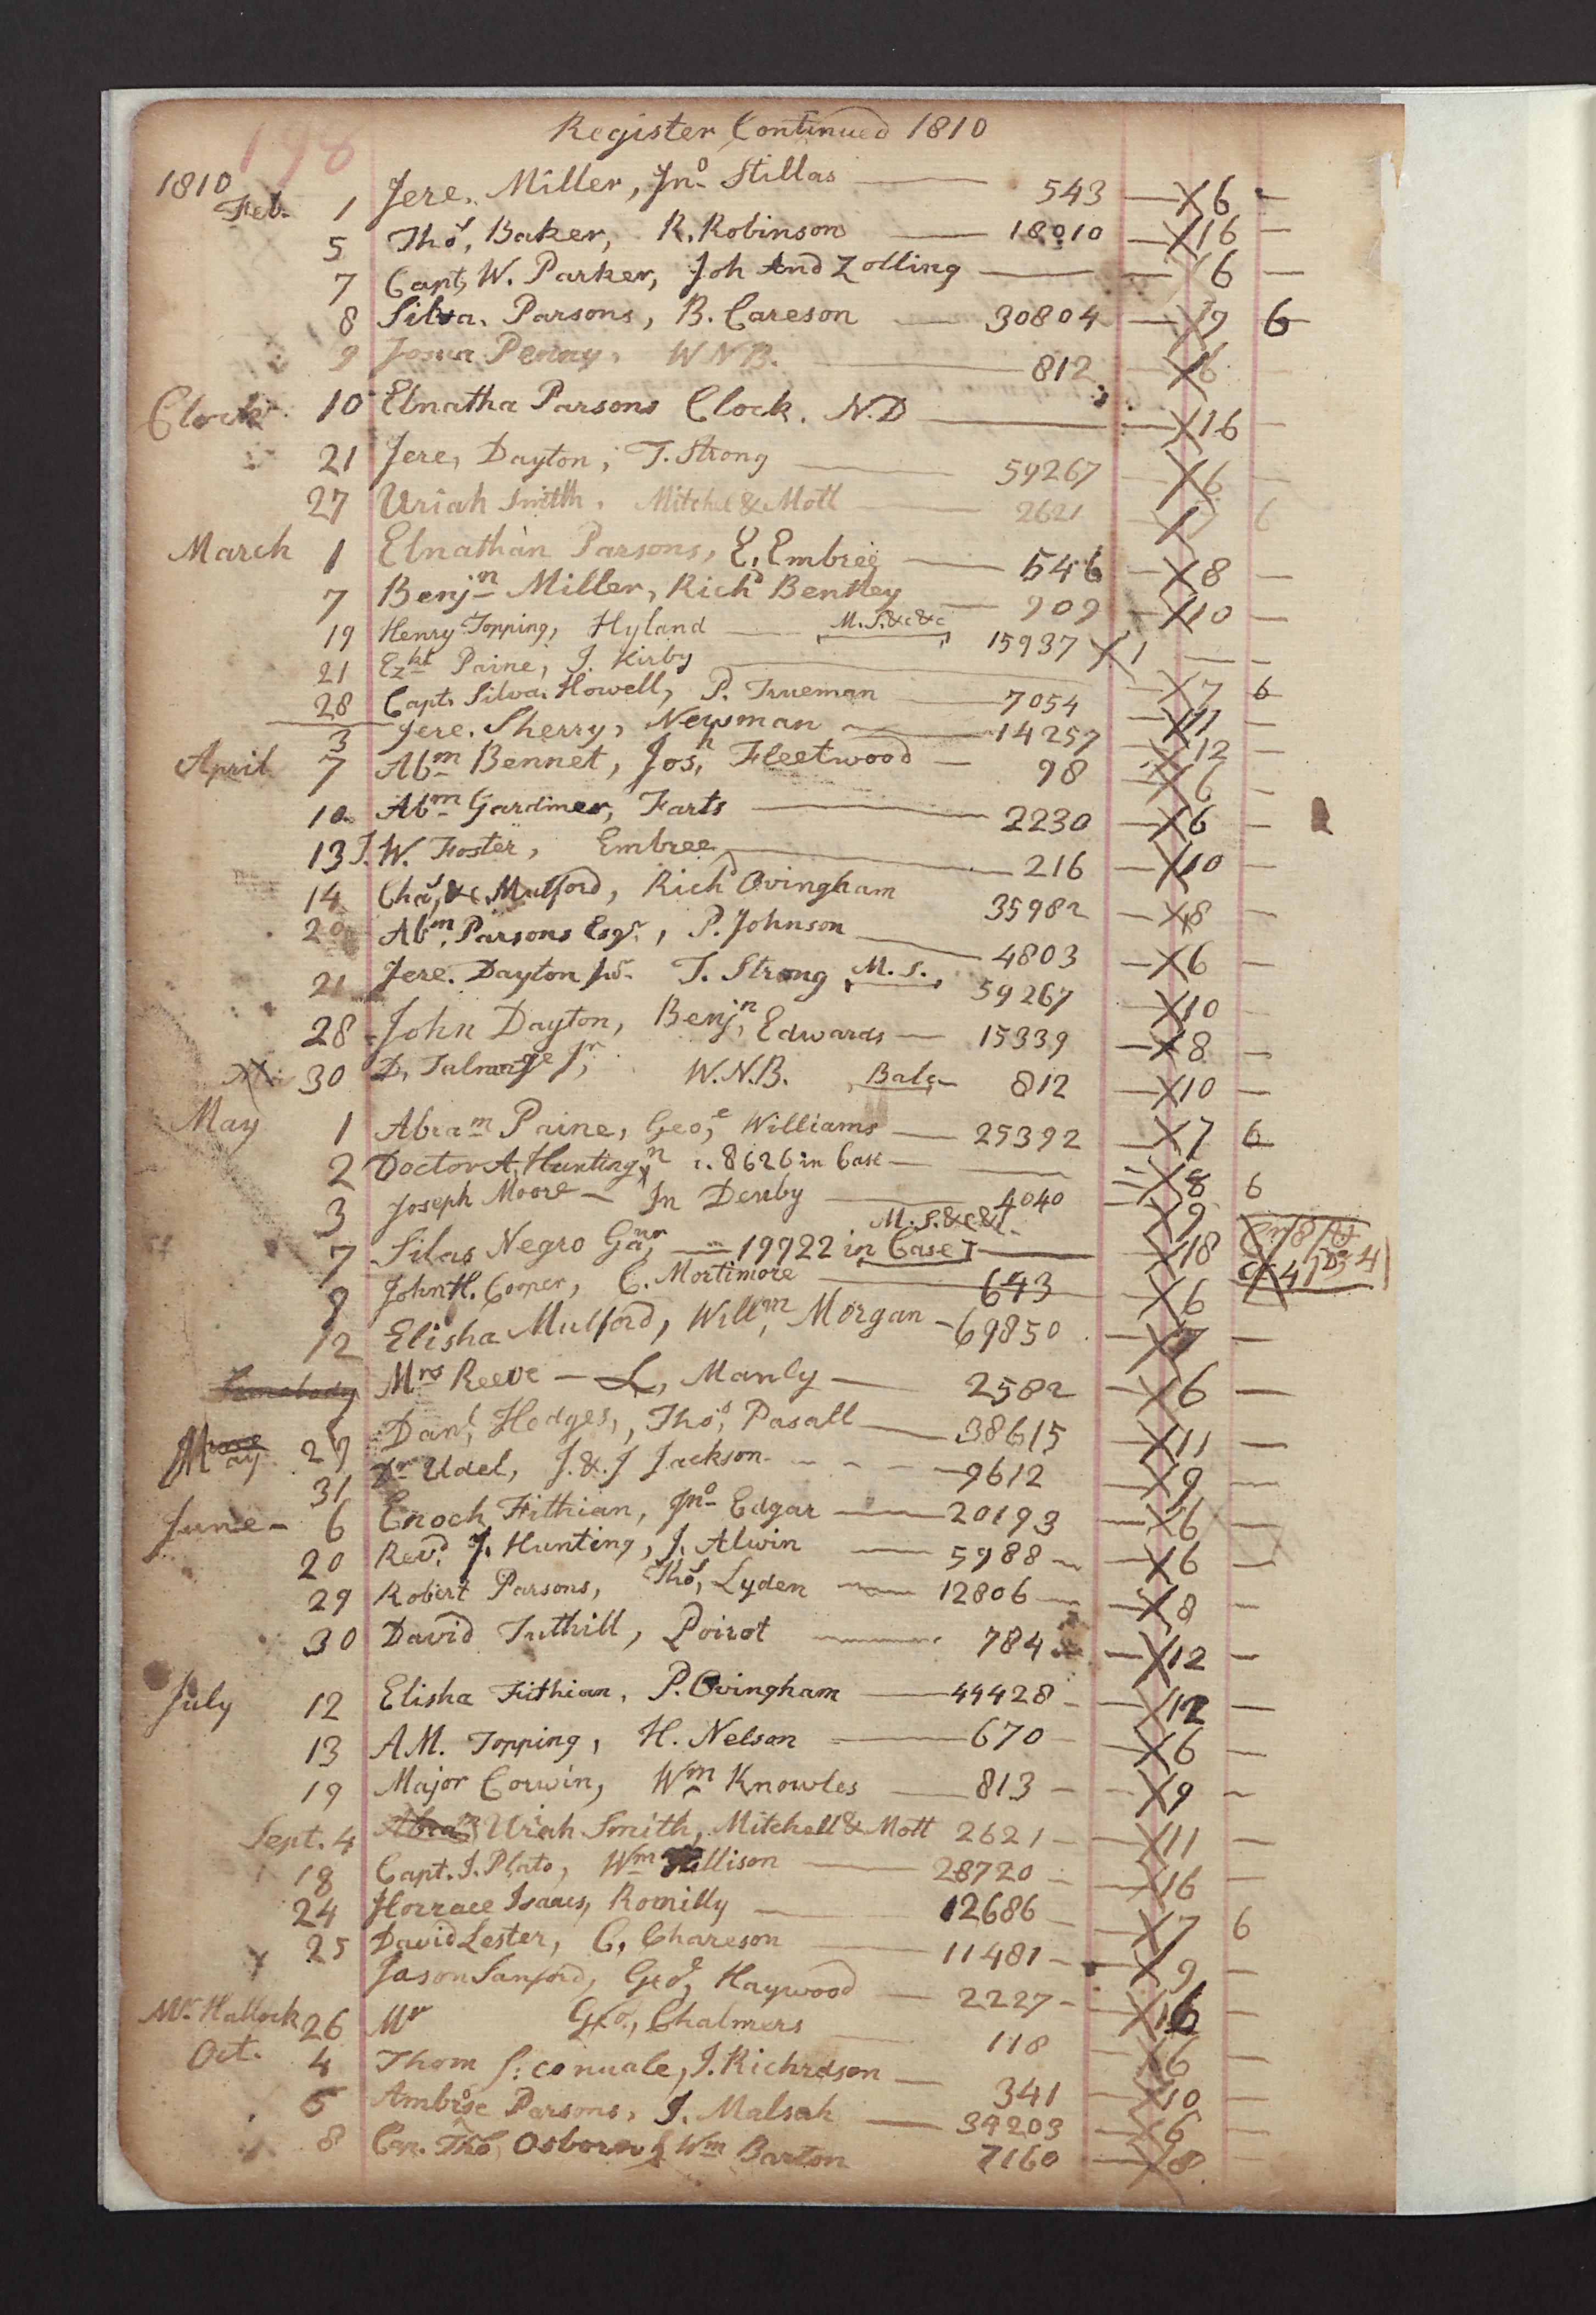 198
Register Continued 1810
1810
Feb. 1 Jere. Miller, Jno Stillas — 543 — X 6 —
5 Thos, Baker, R. Robinson — 18010 — X 16 —
7 Capt, W. Parker, Joh And Zolling — — 6 —
8 Silva. Parsons, B. Careson — 30804 — X 9 6
9 Josua Penny, W N B. — 812 — X 6 —
Clock 10 Elnatha Parsons Clock. N.D — — X 16 —
21 Jere, Dayton, T. Strong — 59267 — X 6 —
27 Uriah Smith, Mitchel & Mott — 2621 — X 7 6
March 1 Elnathan Parsons, E, Embree — 546 — X 8 —
7 Benjn Miller, Richd Bentley — 909 — X 10 —
19 Henry Topping, Hyland — M. S. &c &c 15937 X 1 — —
21 Ezkl Paine, J. Kirby — — X 7 6
28 Capt. Silva. Howell, P. Trueman — 7054 — X 11 —
3 Jere. Sherry, Newsman — 14257 — X 12 —
April 7 Abm Bennet, Josh, Fleetwood — 98 — X 6 —
10 Abm Gardiner, Farts — 2230 — X 6 —
13 J. W. Foster, Embree — 216 — X 10 —
14 Chas, &c. Mulford, Richd Ovingham 35982 — X 8 —
20 Abm, Parsons Esqr, P. Johnson — 4803 — X 6 —
21 Jere. Dayton Jr. T. Strong M. S. 59267 — X 10 —
28 John Dayton, Benjn, Edwards — 15339 — X 8 —
30 D, Talmage Jr, W. N. B. Bale 812 — X 10 —
May 1 Abram Paine, Geoe, Williams — 25392 — X 7 6
2 Doctor A, Huntingn 8626 in Case — — X 8 6
3 Joseph Moore — Jn Denby — 4040 X 9
M. S. &c &c
7 Silas Negro Gar, — 19922 in Case — — X 18
9 John H. Cooper, C. Mortimore — 643 X 6
12 Elisha Mulford, Willm, Morgan — 69850 — X 7 —
Somebody Mrs Reeve — L, Manly — 2582 — X 6 —
May 29 Danl, Hedges, Thos, Pasall — 38615 — X 11 —
31 Dr Udel, J. & J Jackson — 9612 — X 9 —
June - 6 Enoch Fithian, Jno Edgar — 20193 — X 6 —
20 Revd, J. Hunting, J. Alwin — 5988 — X 6 —
29 Robert Parsons, Thos, Lyden — 12806 — X 8 —
30 David Tuthill, Poirot — 784 — X 12 —
July 12 Elisha Fithian, P. Ovingham — 44428 — X 12 —
13 A M. Topping, H. Nelson — 670 — X 6 —
19 Major Corwin, Wm Knowles — 813 — X 9 —
Sept. 4 Abram Uriah Smith, Mitchell & Mott 2621 — X 11 —
18 Capt. J. Plato, Wm Ellison — 28720 — X 16 —
24 Horrace Isaacs, Romilly — 12686 — X 7 6
25 David Lester, C, Chareson — 11481 — X 9 —
Jason Sanford, Geoe, Haywood — 2227 — X 16 —
Mr. Hallock 26 Mr Geo., Chalmers — 118 — X 6 —
Oct. 4 Thom J. Richrdson — 341 — X 10 —
5 Ambrse Parsons, J. Malsah — 39203 — X 6 —
8 Cn. Thos, Osborn Wm Barton 7160 — X 8 —